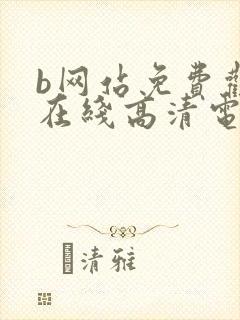 b网站免费觀
在线高清电
清雅